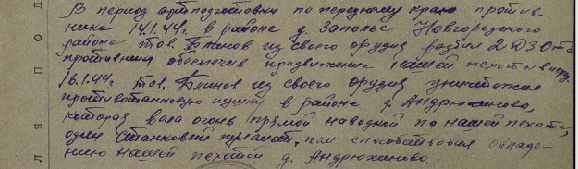 В период артподготовки по переднему краю против-
ника 14.1.44г. в районе д. Заполье Новгородского
района тов. Блинов из своего орудия разбил 2 ДЗОта
противника обеспечив продвижение нашей пехоты вперед.
16.1.44г. тов. Блинов из своего орудия уничтожил
противотанковую пушку в районе д. Андрюхиново,
которая вела огонь прямой наводкой по нашей пехоте,
один станковый пулемет, чем способствовал овладе-
нию нашей пехотой д. Андрюхиново.